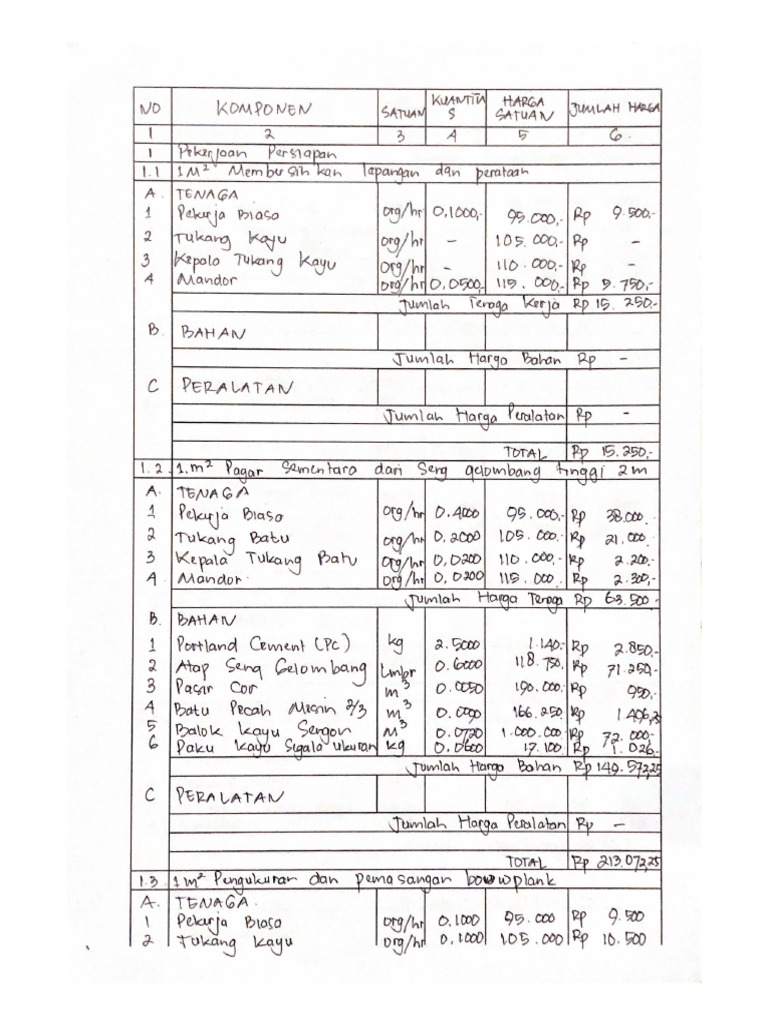 NO KOMPONEN SATUAN KUANTITAS HARGA SATUAN JUMLAH HARGA
1 2 3 4 5 6.
1 Pekerjaan Persiapan
1.1 1M² Membersihkan lapangan dan perataan
A. TENAGA
1 Pekerja Biasa org/hr 0,1000,- 95.000,- Rp 9.500,-
2 Tukang Kayu org/hr - 105.000,- Rp -
3 Kepala Tukang Kayu org/hr - 110.000,- Rp -
4 Mandor org/hr 0,0500,- 115.000,- Rp 5.750,-
Jumlah Tenaga Kerja Rp 15.250,-
B. BAHAN
Jumlah Harga Bahan Rp -
C PERALATAN
Jumlah Harga Peralatan Rp -
TOTAL Rp 15.250,-
1.2. 1.m² Pagar Sementara dari Seng gelombang tinggi 2m
A. TENAGA
1 Pekerja Biasa org/hr 0.4000 95.000,- Rp 38.000.
2 Tukang Batu org/hr 0.2000 105.000,- Rp 21.000.
3 Kepala Tukang Batu org/hr 0,0200 110.000,- Rp 2.200,-
4. Mandor. org/hr 0,0200 115.000. Rp 2.300,-
Jumlah Harga Tenaga Rp 63.500-
B. BAHAN
1 Portland Cement (Pc) kg 2.5000 1.140,- Rp 2.850,-
2 Atap Seng Gelombang Lmbr 0.6000 118.750, Rp 71.250,-
3 Pasir Cor m³ 0.0050 190.000,- Rp 950,-
4 Batu Pecah Mesin 2/3 m³ 0.0090 166.250 Rp 1.496,25
5 Balok Kayu Sengon M³ 0.0720 1.000.000 Rp 72.000,-
6 Paku kayu Segala ukuran kg 0.0600 17.100 Rp 1.026,-
Jumlah Harga Bahan Rp 149.572,25
C PERALATAN
Jumlah Harga Peralatan Rp -
TOTAL Rp 213.072,25
1.3. 1m² Pengukuran dan pemasangan bouwplank
A. TENAGA.
1 Pekerja Biasa org/hr 0.1000 95.000 Rp 9.500
2 Tukang Kayu org/hr 0,1000 105.000 Rp 10.500